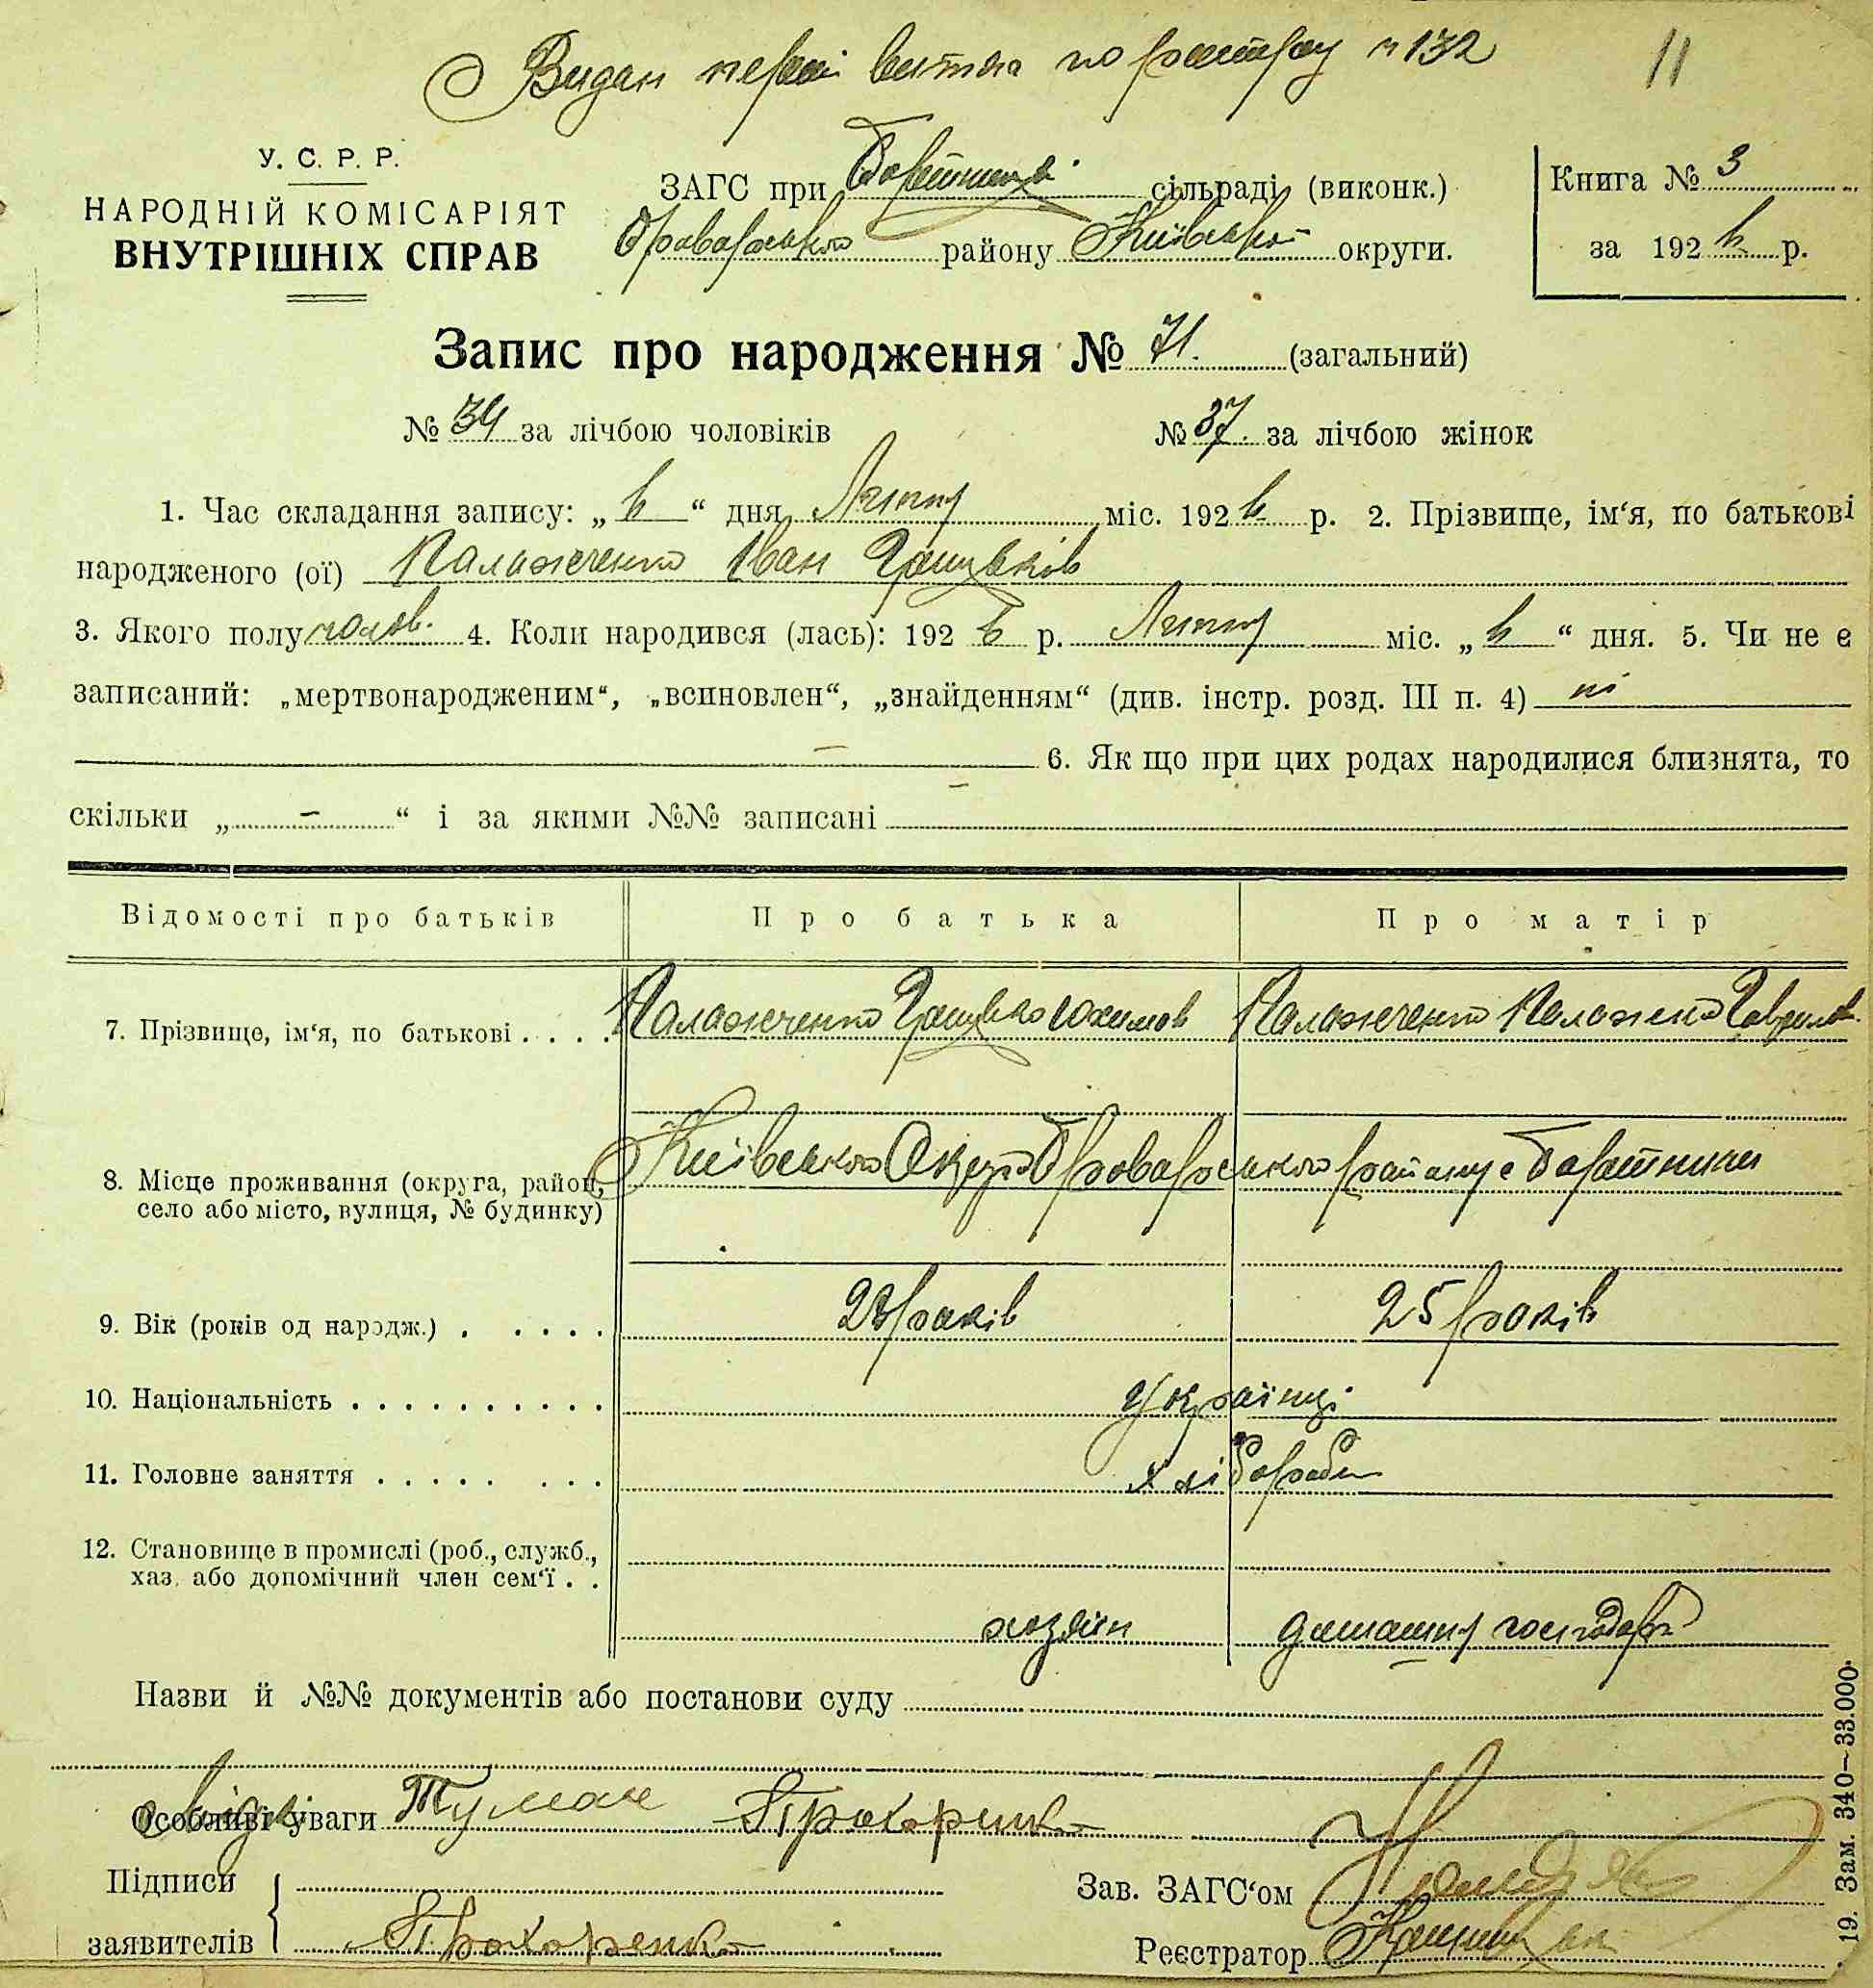 Видан перві витяг по реєстру н 132
11
У. С. Р. Р.
НАРОДНІЙ КОМІСАРІЯТ
ВНУТРІШНІХ СПРАВ
ЗАГС при сільраді (виконк.)
Броварського району Київської округи.
Книга № 3
за 192 р.
Запис про народження № 71. (загальний)
№ 34 за лічбою чоловіків
№ 37. за лічбою жінок
1. Час складання запису: „ “ дня міс. 192 р. 2. Прізвище, ім‘я, по батькові
народженого (ої) Палажченко Іван Грицьків
3. Якого полу чолов. 4. Коли народився (лась): 192 р. міс. „ “ дня. 5. Чи не є
записаний: „мертвонародженим“, „всиновлен“, „знайденням“ (див. інстр. розд. III п. 4) ні
– 6. Як що при цих родах народилися близнята, то
скільки „ – “ і за якими №№ записані –
Відомості про батьків
Про батька
Про матір
7. Прізвище, ім‘я, по батькові . . . .
Палажченко Грицько Юхимов
Палажченко Палажка Гаврилов.
8. Місце проживання (округа, район,
село або місто, вулиця, № будинку)
Київської Округи Броварського району с
9. Вік (років од народж.) . . . . .
років
25 років
10. Національність . . . . . . . . . .
Українці
11. Головне заняття . . . . . . . .
хлібороби
12. Становище в промислі (роб., служб.,
хаз. або допомічний член сем‘ї . .
хозяїн
домашня господарк
Назви й №№ документів або постанови суду
Особливі уваги
свідкі Туман Прохоренко
Підписи
заявителів
Прохоренко
Зав. ЗАГС‘ом
Реєстратор
19. Зам. 340—33.000.